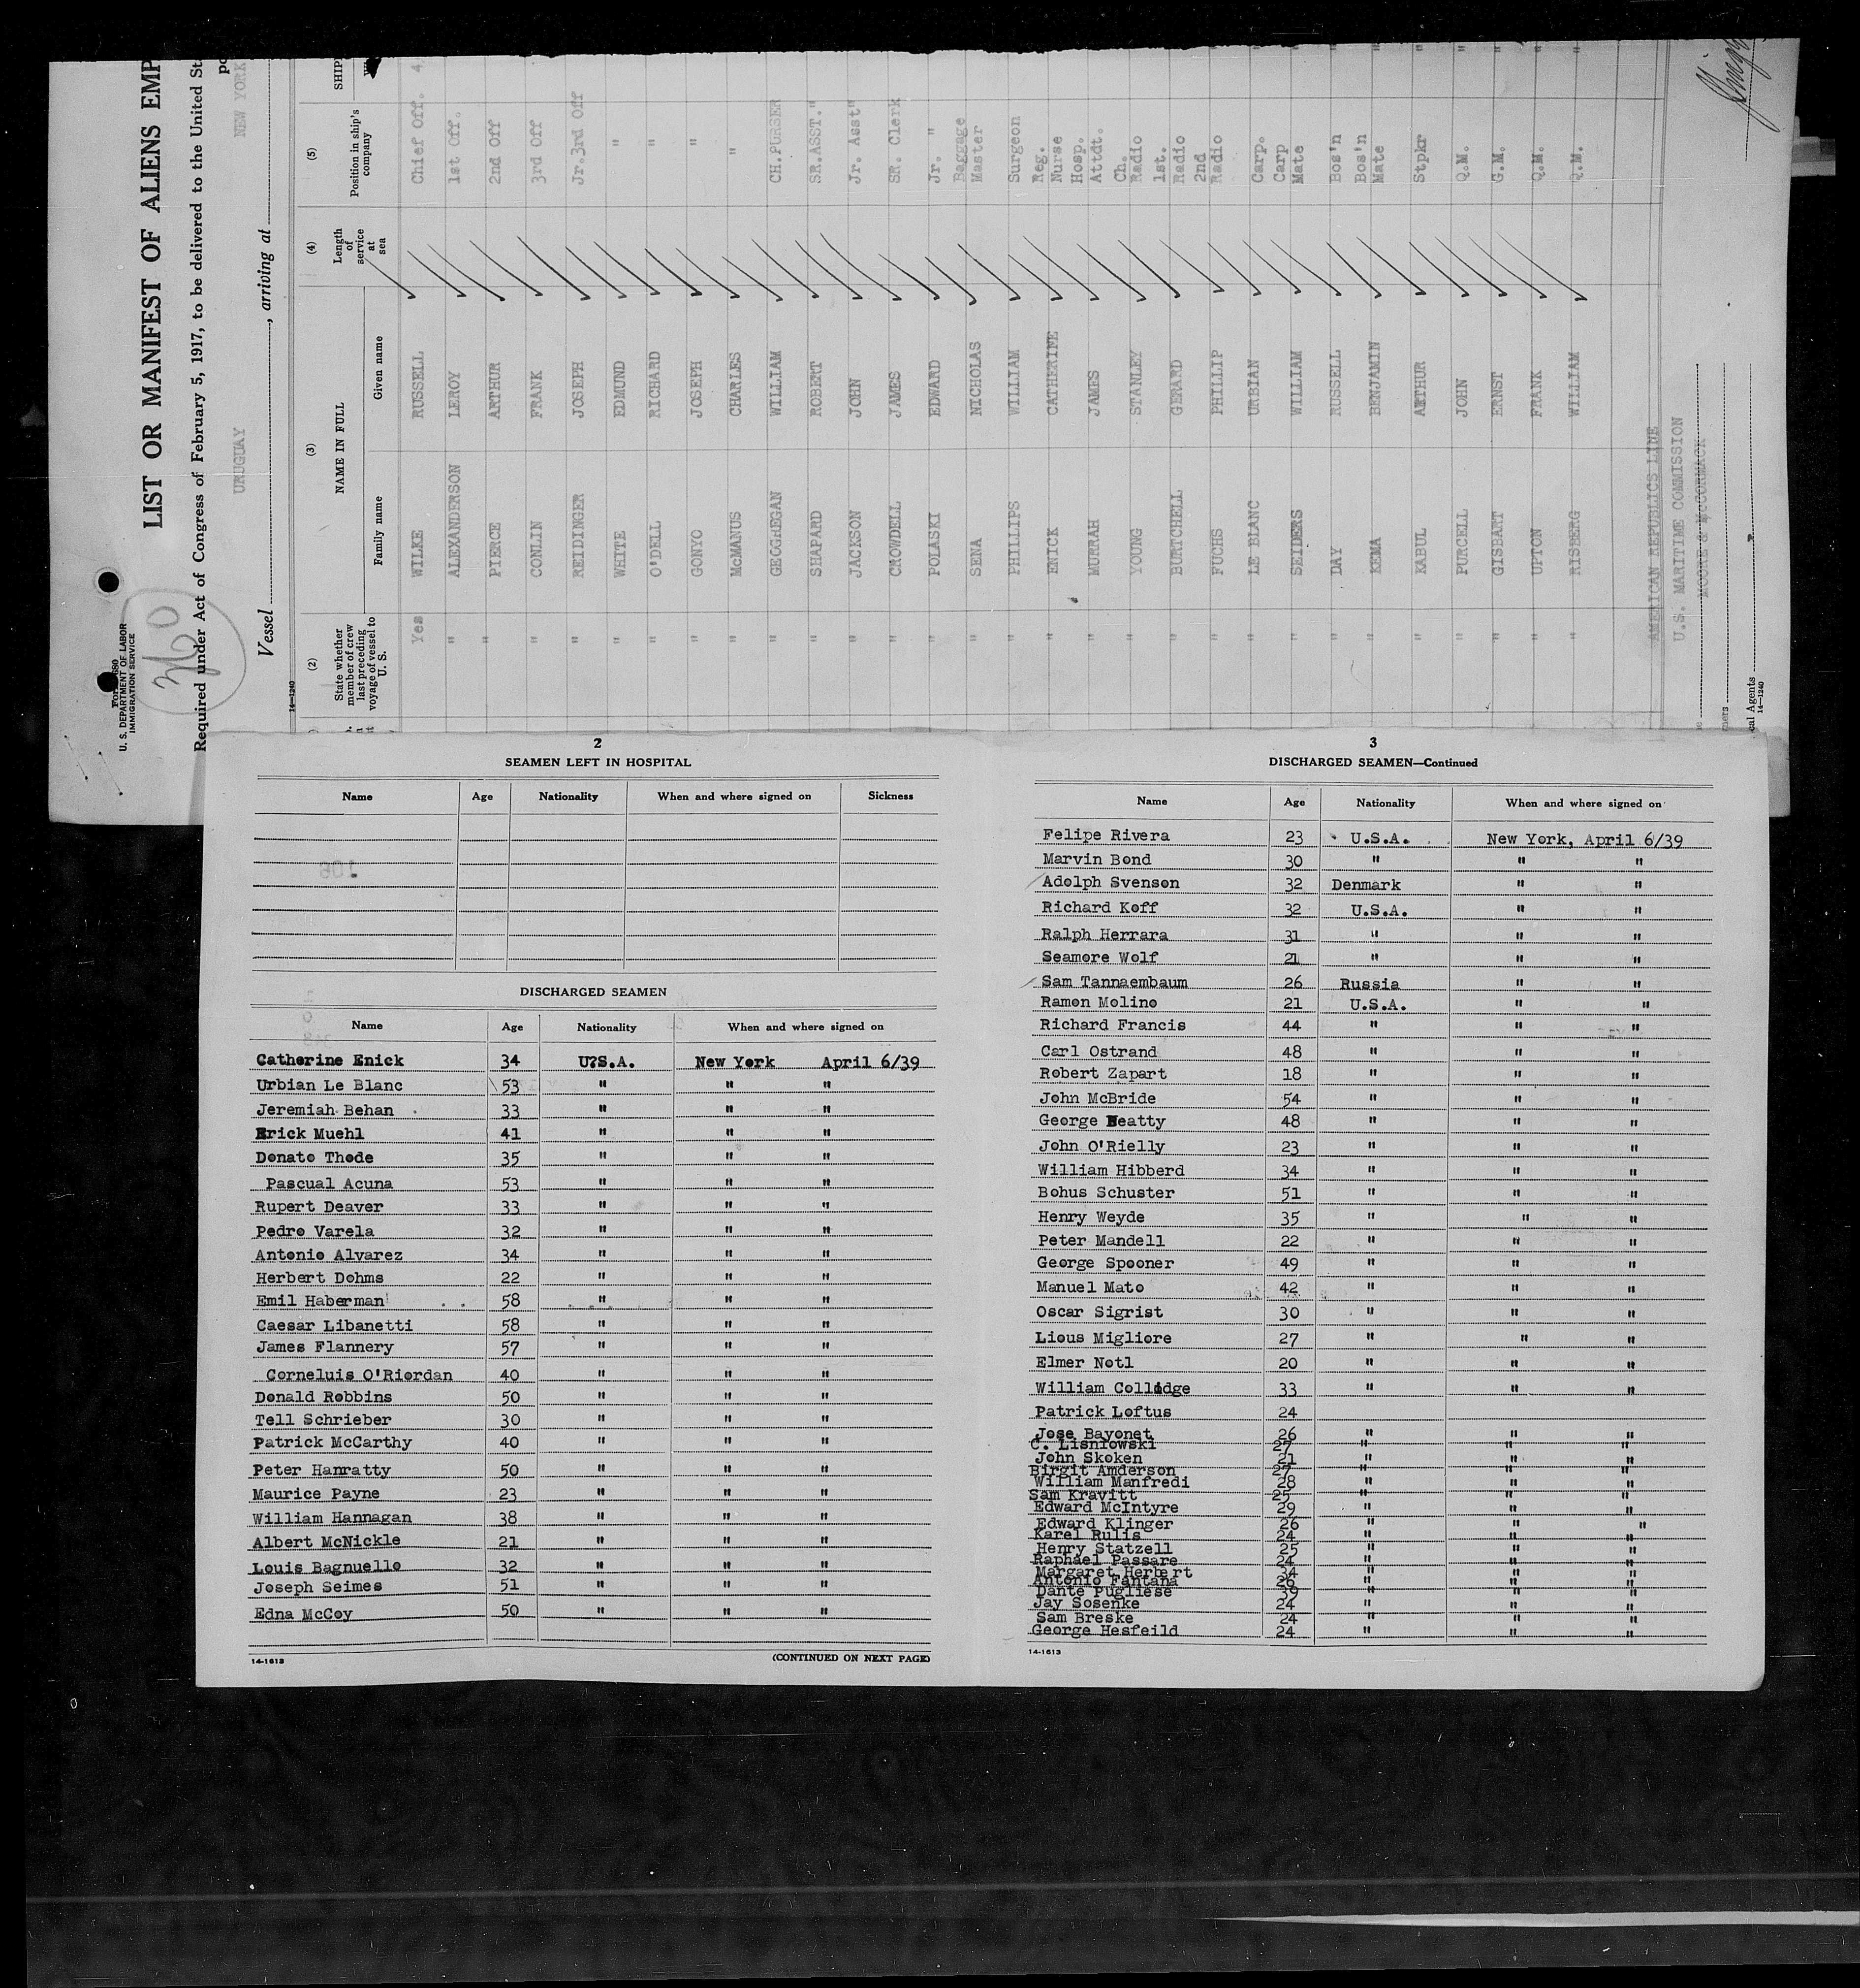 Form 680
U. S. DEPARTMENT OF LABOR
IMMIGRATION SERVICE
360
LIST OR MANIFEST OF ALIENS EMP
Required under Act of Congress of February 5, 1917, to be delivered to the United St
Vessel URUGUAY, arriving at NEW YORK
14-1240
(2) (3) (4) (5)
State whether member of crew last preceding voyage of vessel to U. S.
NAME IN FULL
Family name Given name
Length of service at sea
Position in ship's company
SHIP
Yes WILKE RUSSELL Chief Off. 4
" ALEXANDERSON LEROY 1st Off.
" PIERCE ARTHUR 2nd Off
" CONLIN FRANK 3rd Off
" REIDINGER JOSEPH Jr.3rd Off
" WHITE EDMUND "
" O'DELL RICHARD "
" GONYO JOSEPH "
" McMANUS CHARLES "
" GEOGHEGAN WILLIAM CH.PURSER
" SHAPARD ROBERT SR.ASST."
" JACKSON JOHN Jr. Asst"
" CROWDELL JAMES SR. Clerk
" POLASKI EDWARD Jr. "
" SENA NICHOLAS Baggage Master
" PHILLIPS WILLIAM Surgeon
" ENICK CATHERINE Reg. Nurse
" MURRAH JAMES Hosp. Attdt.
" YOUNG STANLEY Ch. Radio
" BURTCHELL GERARD 1st. Radio
" FUCHS PHILLIP 2nd Radio
" LE BLANC URBIAN Carp.
" SEIDERS WILLIAM Carp Mate
" DAY RUSSELL Bos'n
" KEMA BENJAMIN Bos'n Mate
" KABUL ARTHUR Stpkr
" PURCELL JOHN Q.M.
" GISBART ERNST G.M.
" UPTON FRANK Q.M.
" RISBERG WILLIAM Q.M.
AMERICAN REPUBLICS LINE
U.S. MARITIME COMMISSION
MOORE & McCORMACK
cal Agents
14-1240
2
SEAMEN LEFT IN HOSPITAL
Name Age Nationality When and where signed on Sickness
DISCHARGED SEAMEN
Name Age Nationality When and where signed on
Catherine Enick 34 U?S.A. New York April 6/39
Urbian Le Blanc 53 " " "
Jeremiah Behan 33 " " "
Erick Muehl 41 " " "
Donato Thode 35 " " "
Pascual Acuna 53 " " "
Rupert Deaver 33 " " "
Pedro Varela 32 " " "
Antonio Alvarez 34 " " "
Herbert Dohms 22 " " "
Emil Haberman 58 " " "
Caesar Libanetti 58 " " "
James Flannery 57 " " "
Corneluis O'Riordan 40 " " "
Donald Robbins 50 " " "
Tell Schrieber 30 " " "
Patrick McCarthy 40 " " "
Peter Hanratty 50 " " "
Maurice Payne 23 " " "
William Hannagan 38 " " "
Albert McNickle 21 " " "
Louis Bagnuello 32 " " "
Joseph Seimes 51 " " "
Edna McCoy 50 " " "
14-1613
(CONTINUED ON NEXT PAGE)
3
DISCHARGED SEAMEN—Continued
Name Age Nationality When and where signed on
Felipe Rivera 23 U.S.A. New York, April 6/39
Marvin Bond 30 " " "
Adolph Svenson 32 Denmark " "
Richard Koff 32 U.S.A. " "
Ralph Herrara 31 " " "
Seamore Wolf 21 " " "
Sam Tannaembaum 26 Russia " "
Ramon Molino 21 U.S.A. " "
Richard Francis 44 " " "
Carl Ostrand 48 " " "
Robert Zapart 18 " " "
John McBride 54 " " "
George Beatty 48 " " "
John O'Rielly 23 " " "
William Hibberd 34 " " "
Bohus Schuster 51 " " "
Henry Weyde 35 " " "
Peter Mandell 22 " " "
George Spooner 49 " " "
Manuel Mato 42 " " "
Oscar Sigrist 30 " " "
Lious Migliore 27 " " "
Elmer Notl 20 " " "
William Collidge 33 " " "
Patrick Loftus 24
Jose Bayonet 26 " " "
C. Lisniowski 27 " " "
John Skoken 21 " " "
Birgit Amderson 27 " " "
William Manfredi 28 " " "
Sam Kravitt 25 " " "
Edward McIntyre 29 " " "
Edward Klinger 26 " " "
Karel Rulis 24 " " "
Henry Statzell 25 " " "
Raphael Passare 24 " " "
Margaret Herbert 34 " " "
Antonio Fantana 26 " " "
Dante Pugliese 39 " " "
Jay Sosenke 24 " " "
Sam Breske 24 " " "
George Hesfeild 24 " " "
14-1613